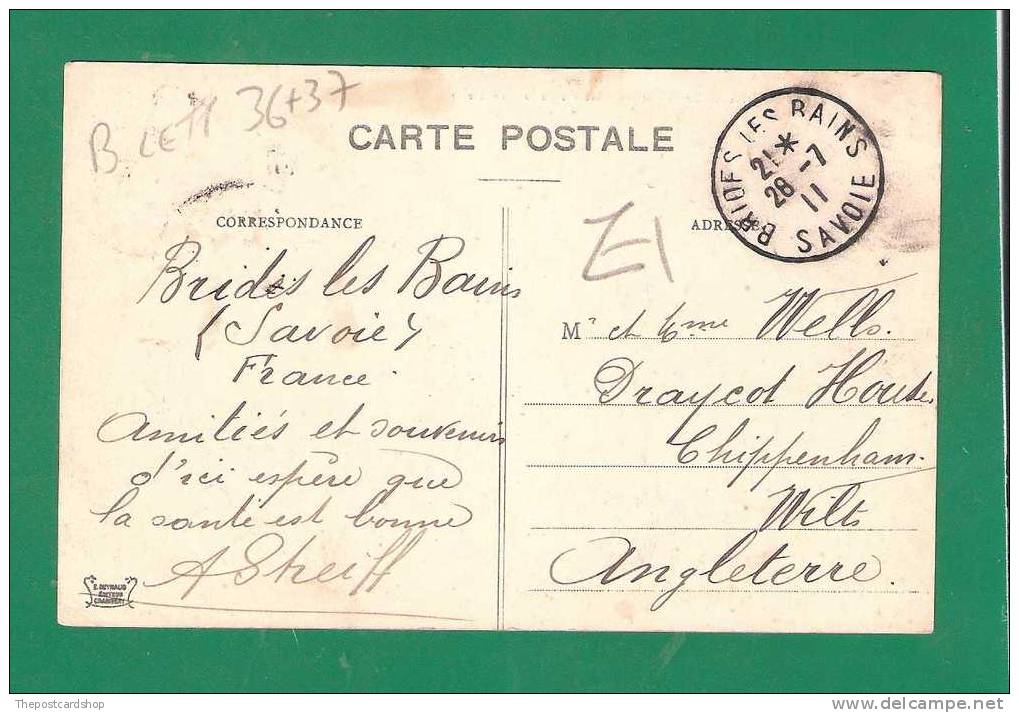 36+37
CARTE POSTALE
BRIDES LES BAINS
21*
28-7
11
SAVOIE
CORRESPONDANCE
ADRESSE
£1
Brides les Bains
(Savoie)
France.
Amitiés et souvenirs
d'ici espère que
la santé est bonne
A Streiff
Mr et Mme Wells.
Draycot House
Chippenham
Wilts
Angleterre.
E. REYNAUD
EDITEUR
CHAMBERY
Thepostcardshop
delcampe.net